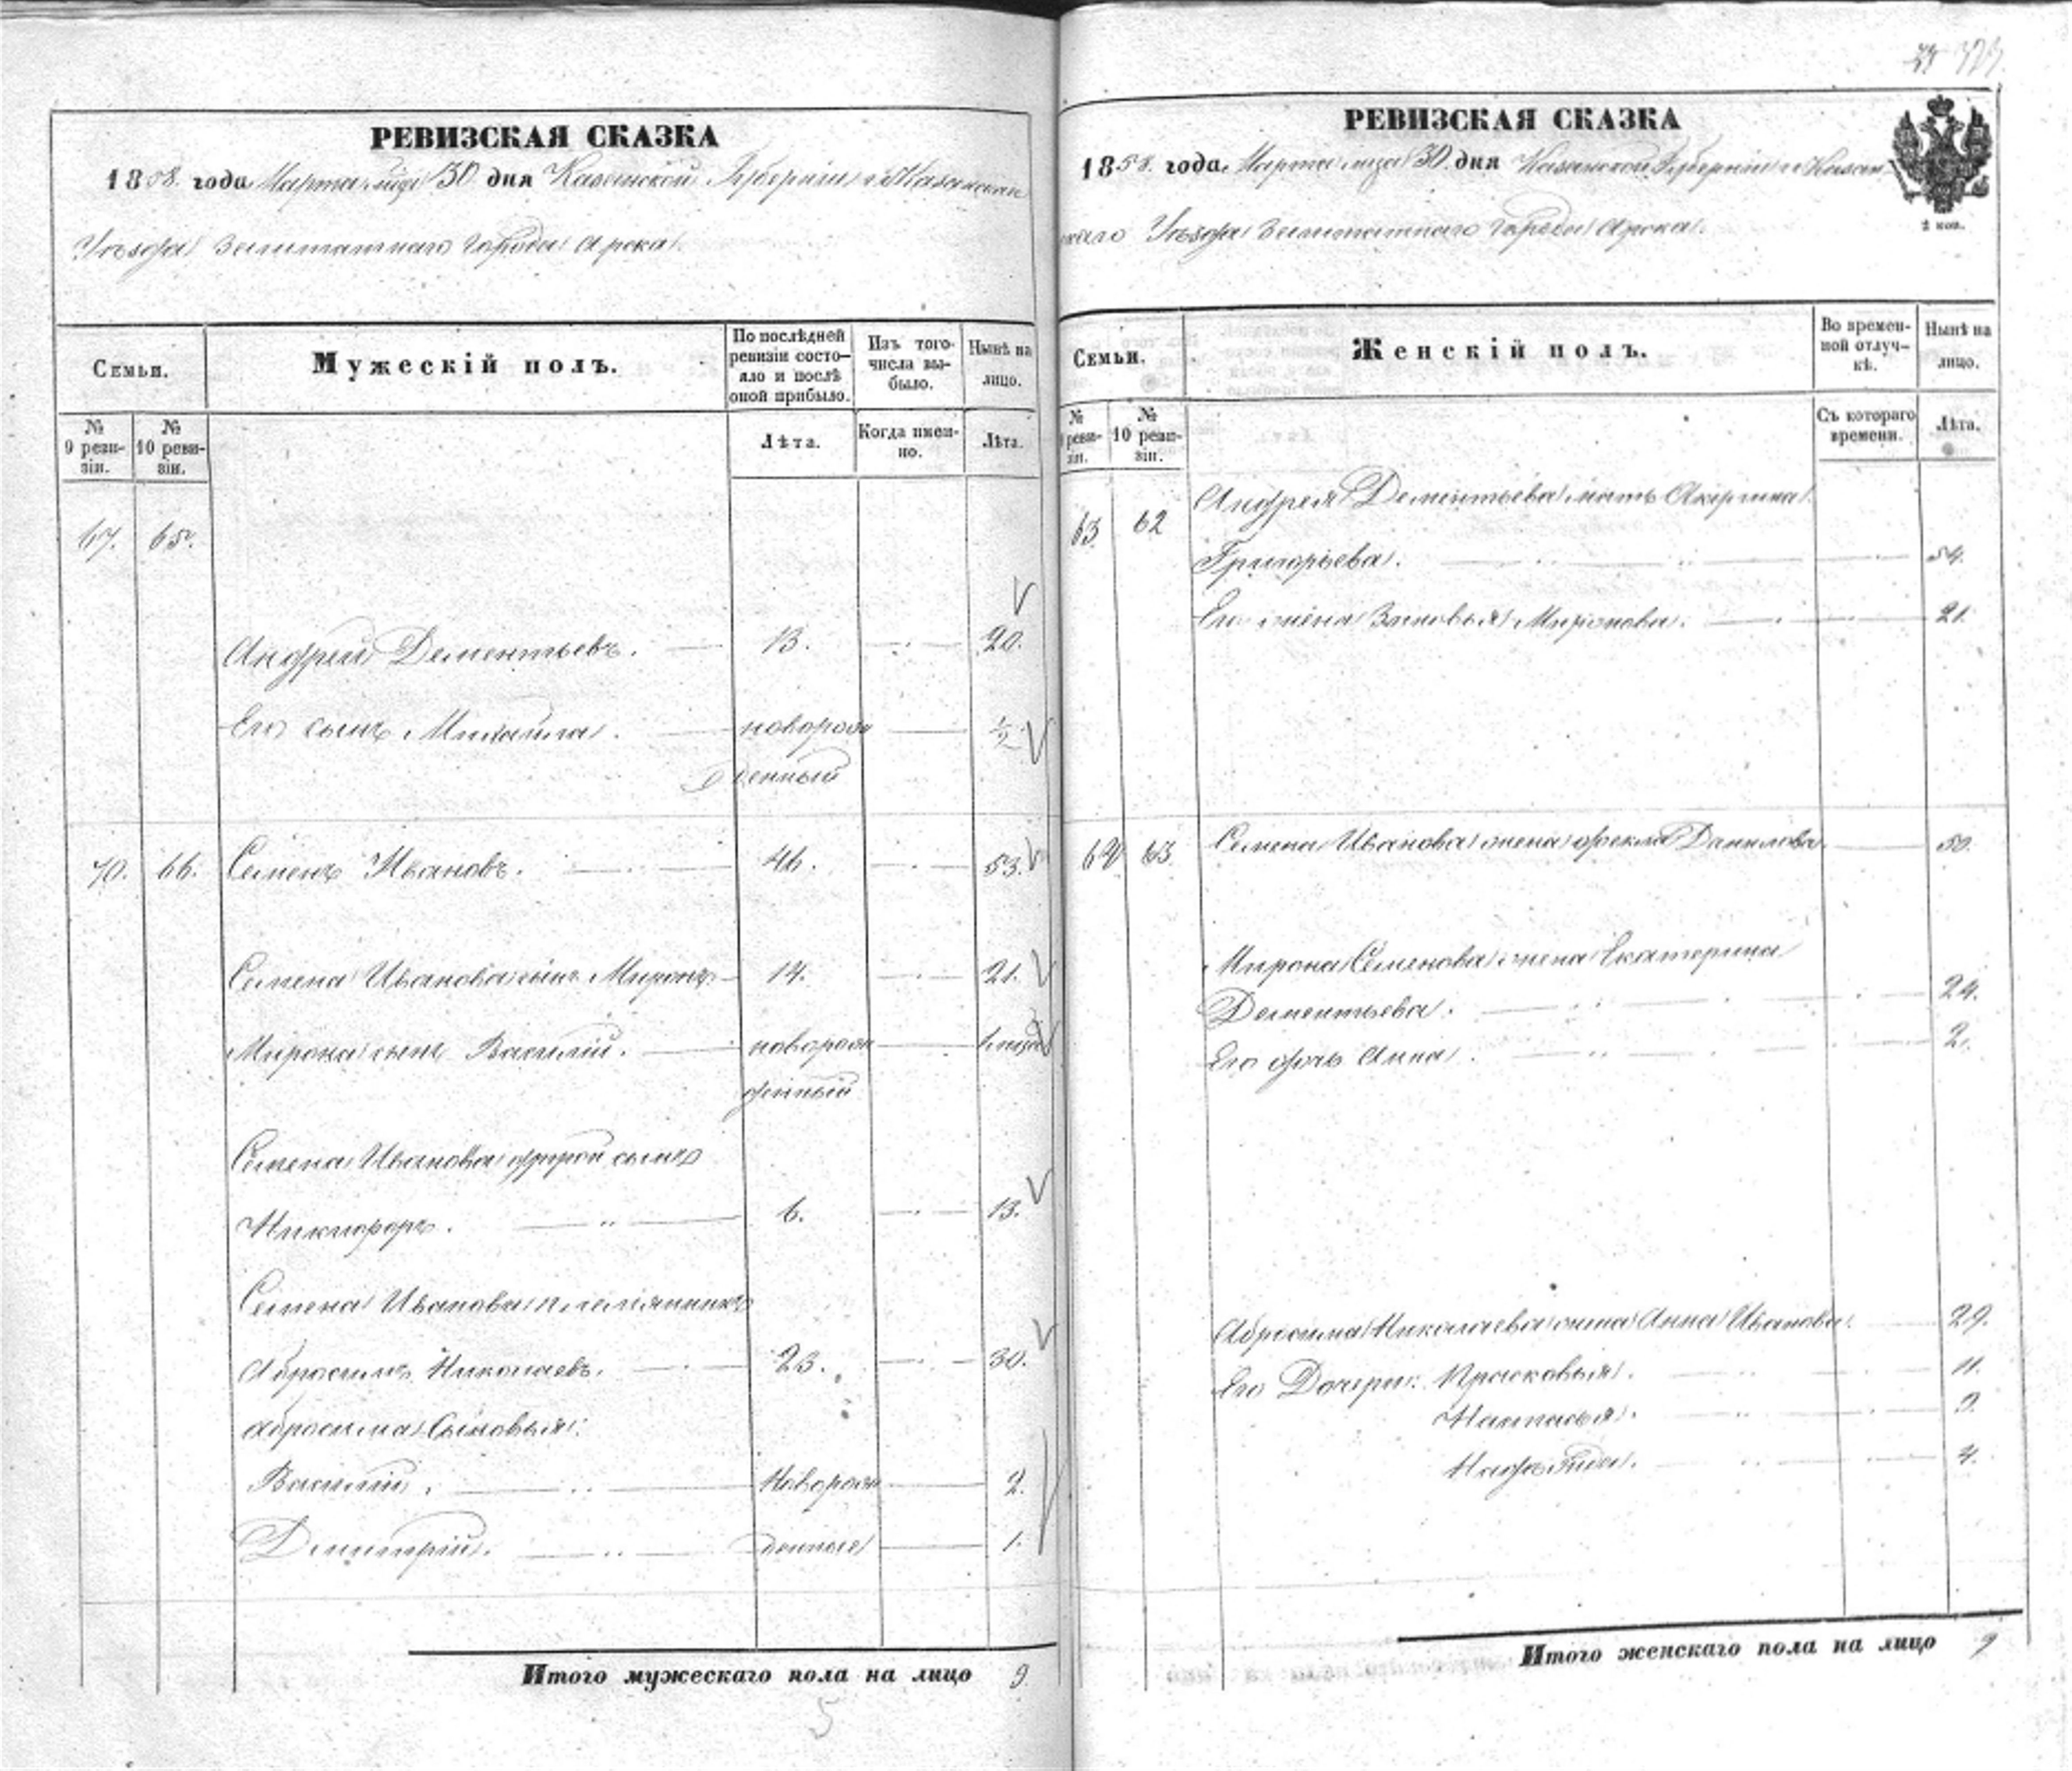 РЕВИЗСКАЯ СКАЗКА
1858. года Марта мца 30. дня Казанской Губернiи и Казанскаго
Уѣзда Заштатнаго города Арска.
Семьи.
Мужескiй полъ.
По послѣдней ревизiи состо-
яло и послѣ оной прибыло.
Изъ того-
числа вы-
было.
Нынѣ на
лицо.
№ 9 реви-
зiи.
№ 10 реви-
зiи.
Лѣта.
Когда имен-
но.
Лѣта.
67. 65.
Андрей Дементьевъ. 13. 20.
Его сынъ Михайла. новорож ½
денный
70. 66. Семенъ Ивановъ. 46. 53.
Семена Иванова сынъ Миронъ 14. 21.
Мирона сынъ Василiй. новорож
денный
Семена Иванова другой сынъ
Никифоръ. 6. 13.
Семена Иванова племянникъ
Абросимъ Николаевъ. 23. 30.
Абросима Сыновья:
Василiй. Новорож 2.
Дмитрiй. денные 1.
Итого мужескаго пола на лицо 9
5
РЕВИЗСКАЯ СКАЗКА
1858. года. Марта мца 30. дня Казанской Губернiи и Казан
скаго Уѣзда Заштатнаго города Арска.
2 коп.
Семьи.
Женскiй полъ.
Во времен-
ной отлуч-
кѣ.
Нынѣ на
лицо.
№ реви-
зiи.
№ 10 реви-
зiи.
Съ котораго
времени.
Лѣта.
63 62 Андрея Дементьева мать
Григорьева. 54.
Его жена Зиновья Миронова. 21.
64 63 Семена Иванова жена Фекла Данилова 50.
Мирона Семенова жена Екатерина
Дементьева. 24.
Его дочь Анна. 2.
Абросима Николаева жена Анна Иванова. 29.
Его Дочери: Прасковья. 11.
Настасья. 9.
Надежда. 4.
Итого женскаго пола на лицо 9